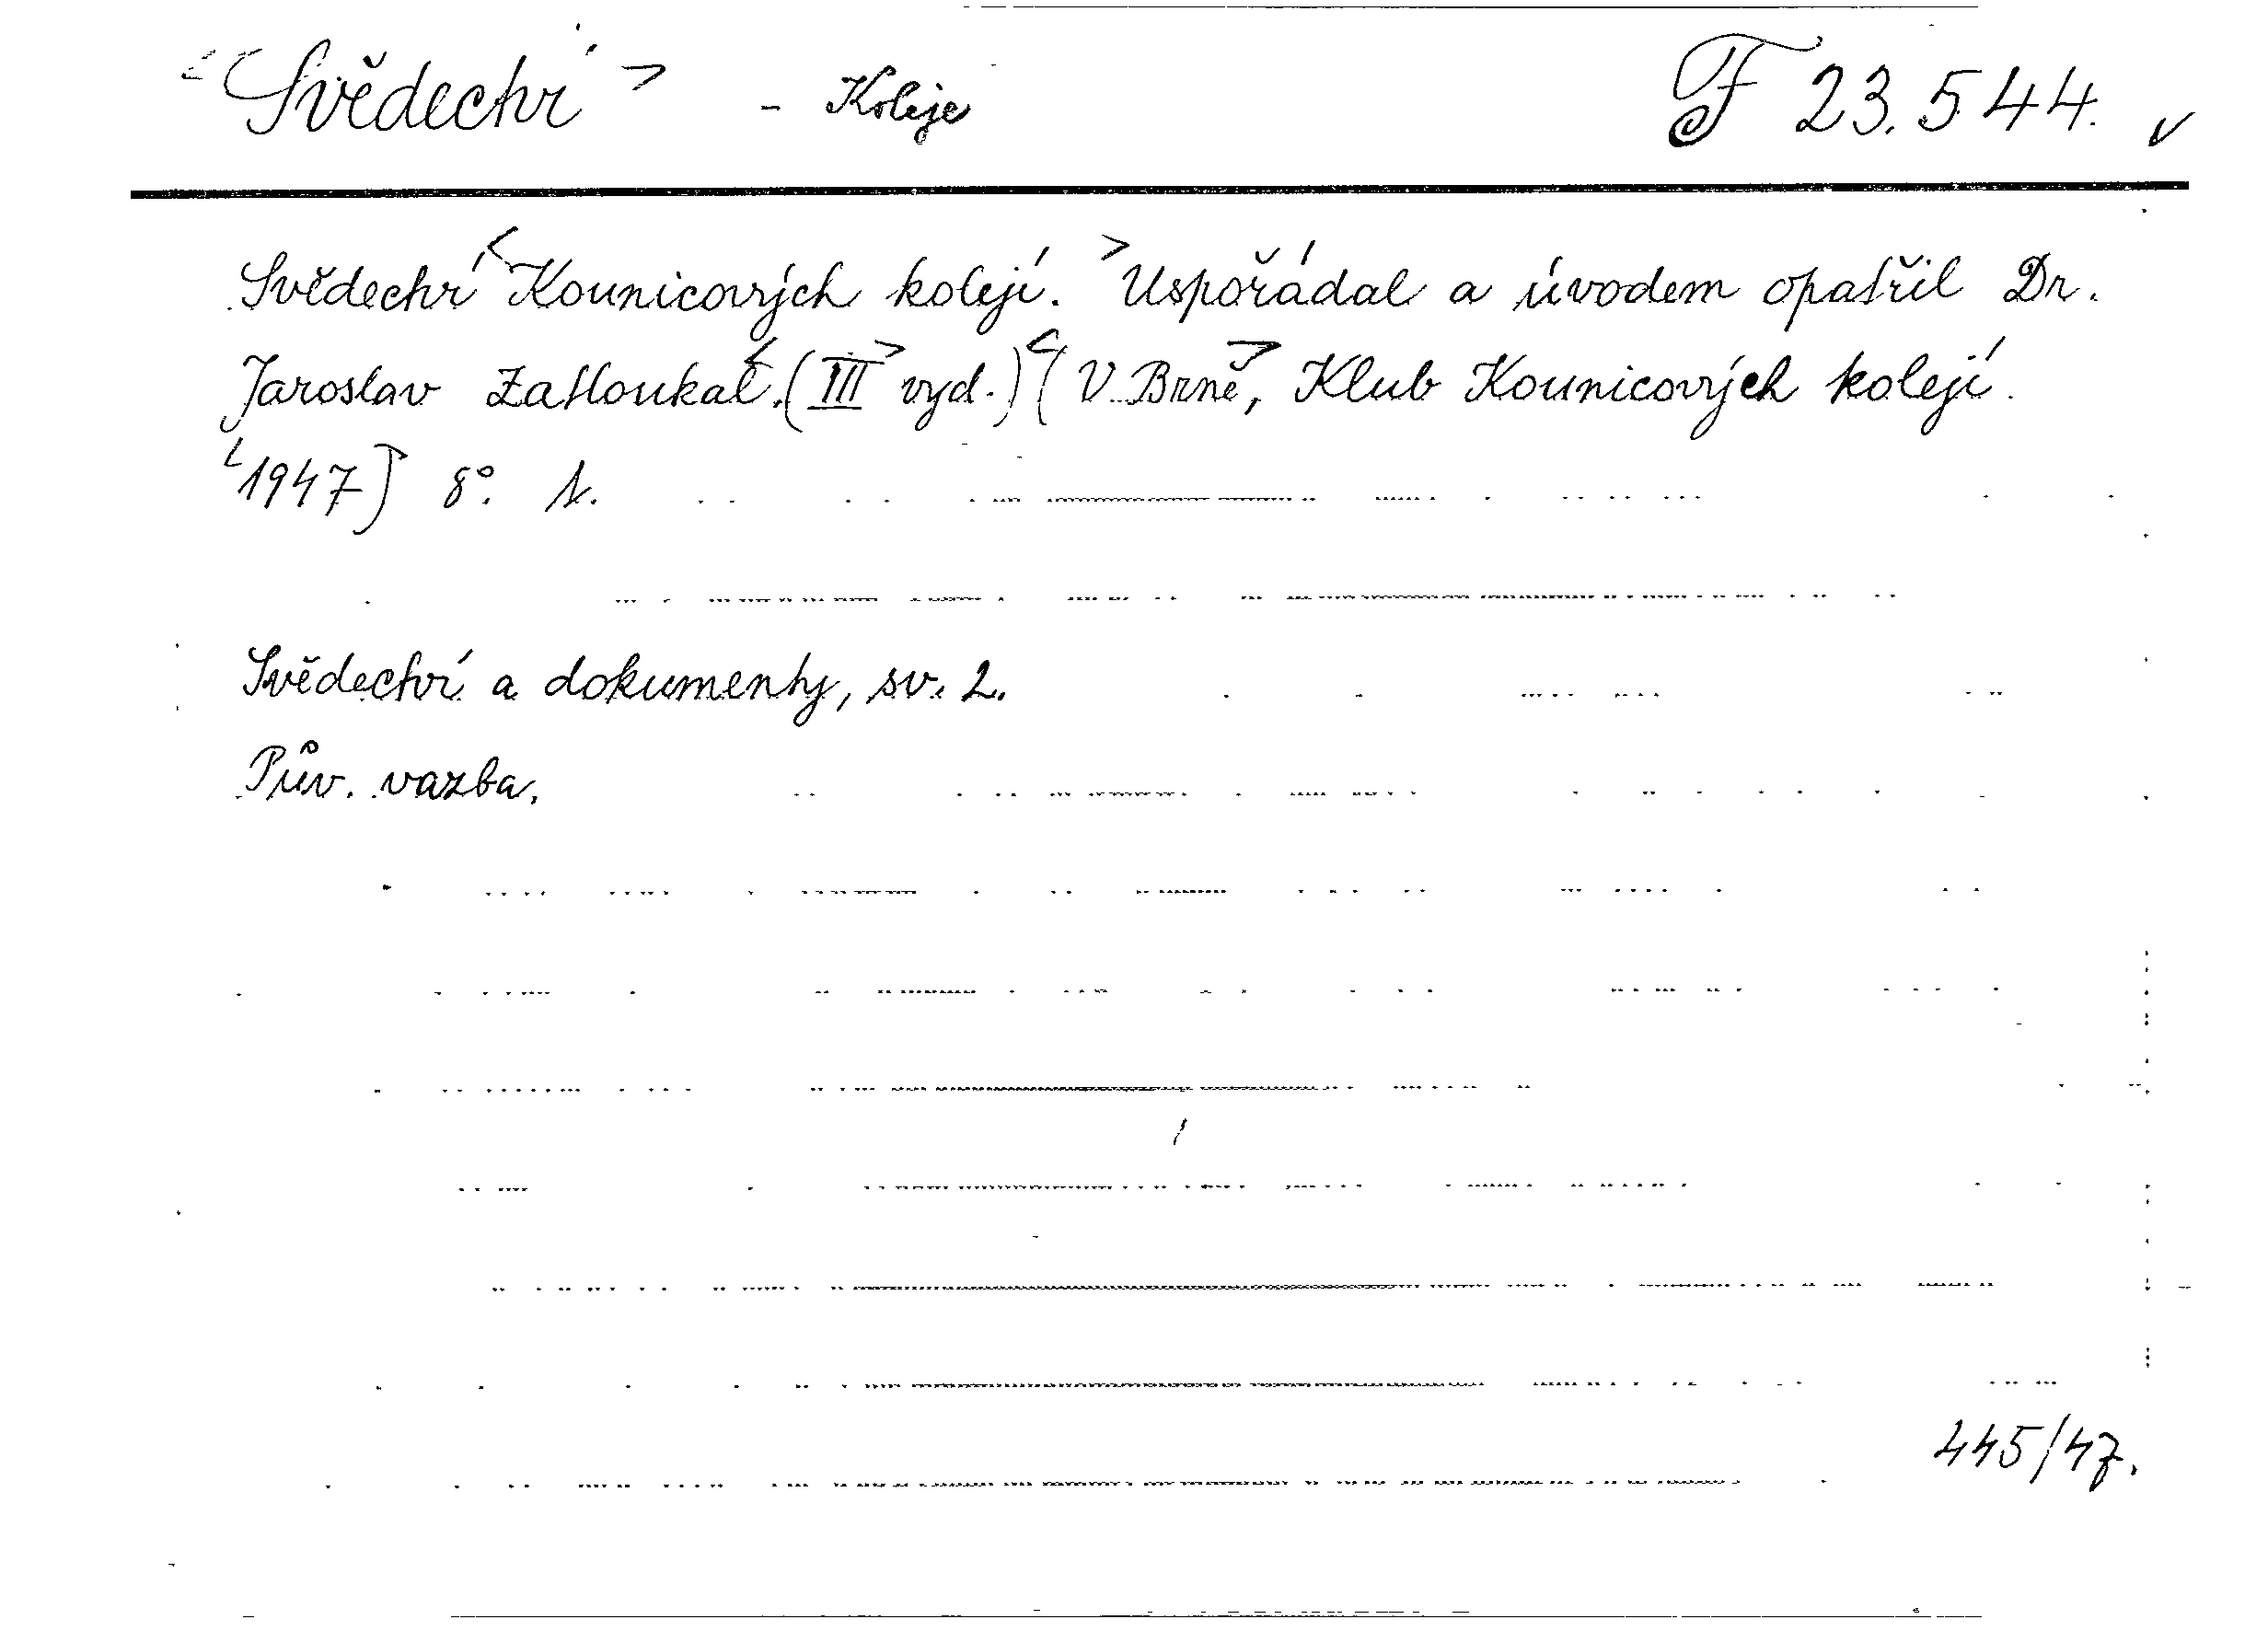 <Svědectví> - Koleje F 23.544. ✓
Svědectví <Kounicových kolejí.> Uspořádal a úvodem opatřil Dr.
Jaroslav Zatloukal. <(III> vyd.) <(V Brně>, Klub Kounicových kolejí
<1947)> 8°. 1.
Svědectví a dokumenty, sv. 2.
Pův. vazba.
445/47.